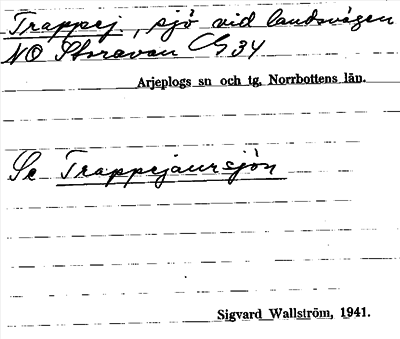 Trappej, sjö vid landsvägen
NO Storavan G34
Arjeplogs sn och tg, Norrbottens län.
Se Trappejaursjön
Sigvard Wallström, 1941.